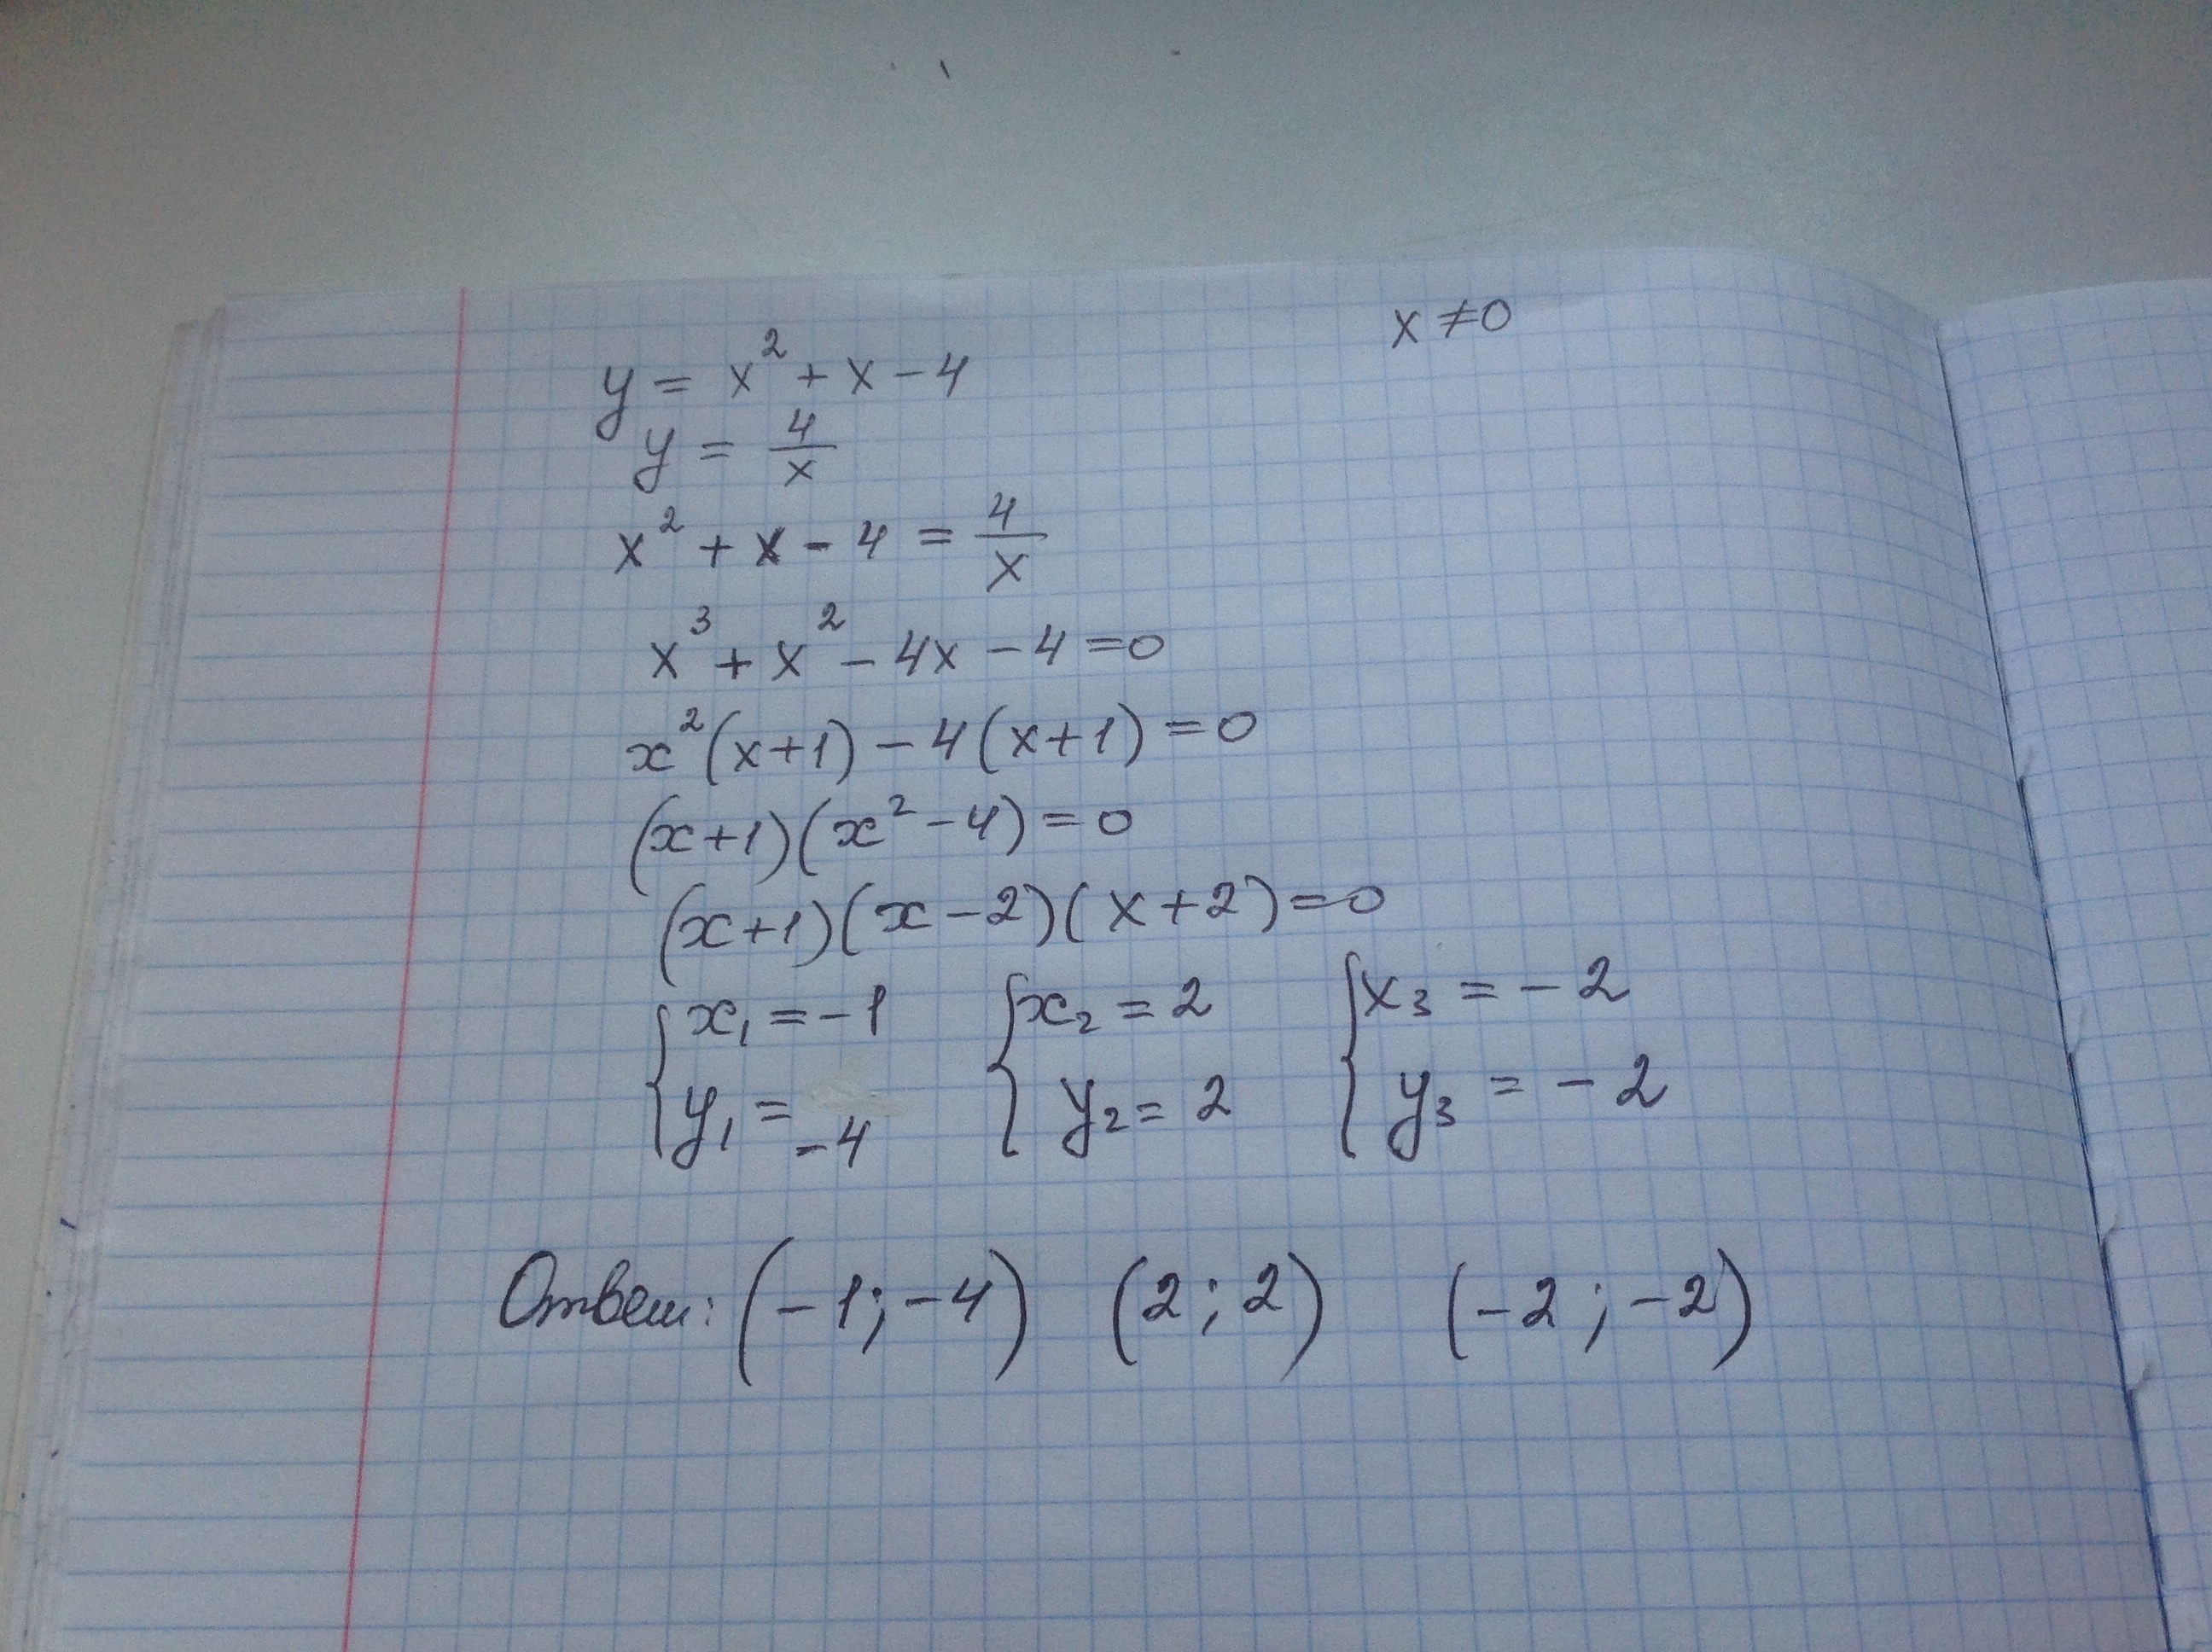 x ≠ 0
y = x² + x - 4
y = 4/x
x² + x - 4 = 4/x
x³ + x² - 4x - 4 = 0
x²(x+1) - 4(x+1) = 0
(x+1)(x² - 4) = 0
(x+1)(x-2)(x+2) = 0
{x₁ = -1 {x₂ = 2 {x₃ = -2
y₁ = -4 y₂ = 2 y₃ = -2
Ответ: (-1; -4) (2; 2) (-2; -2)